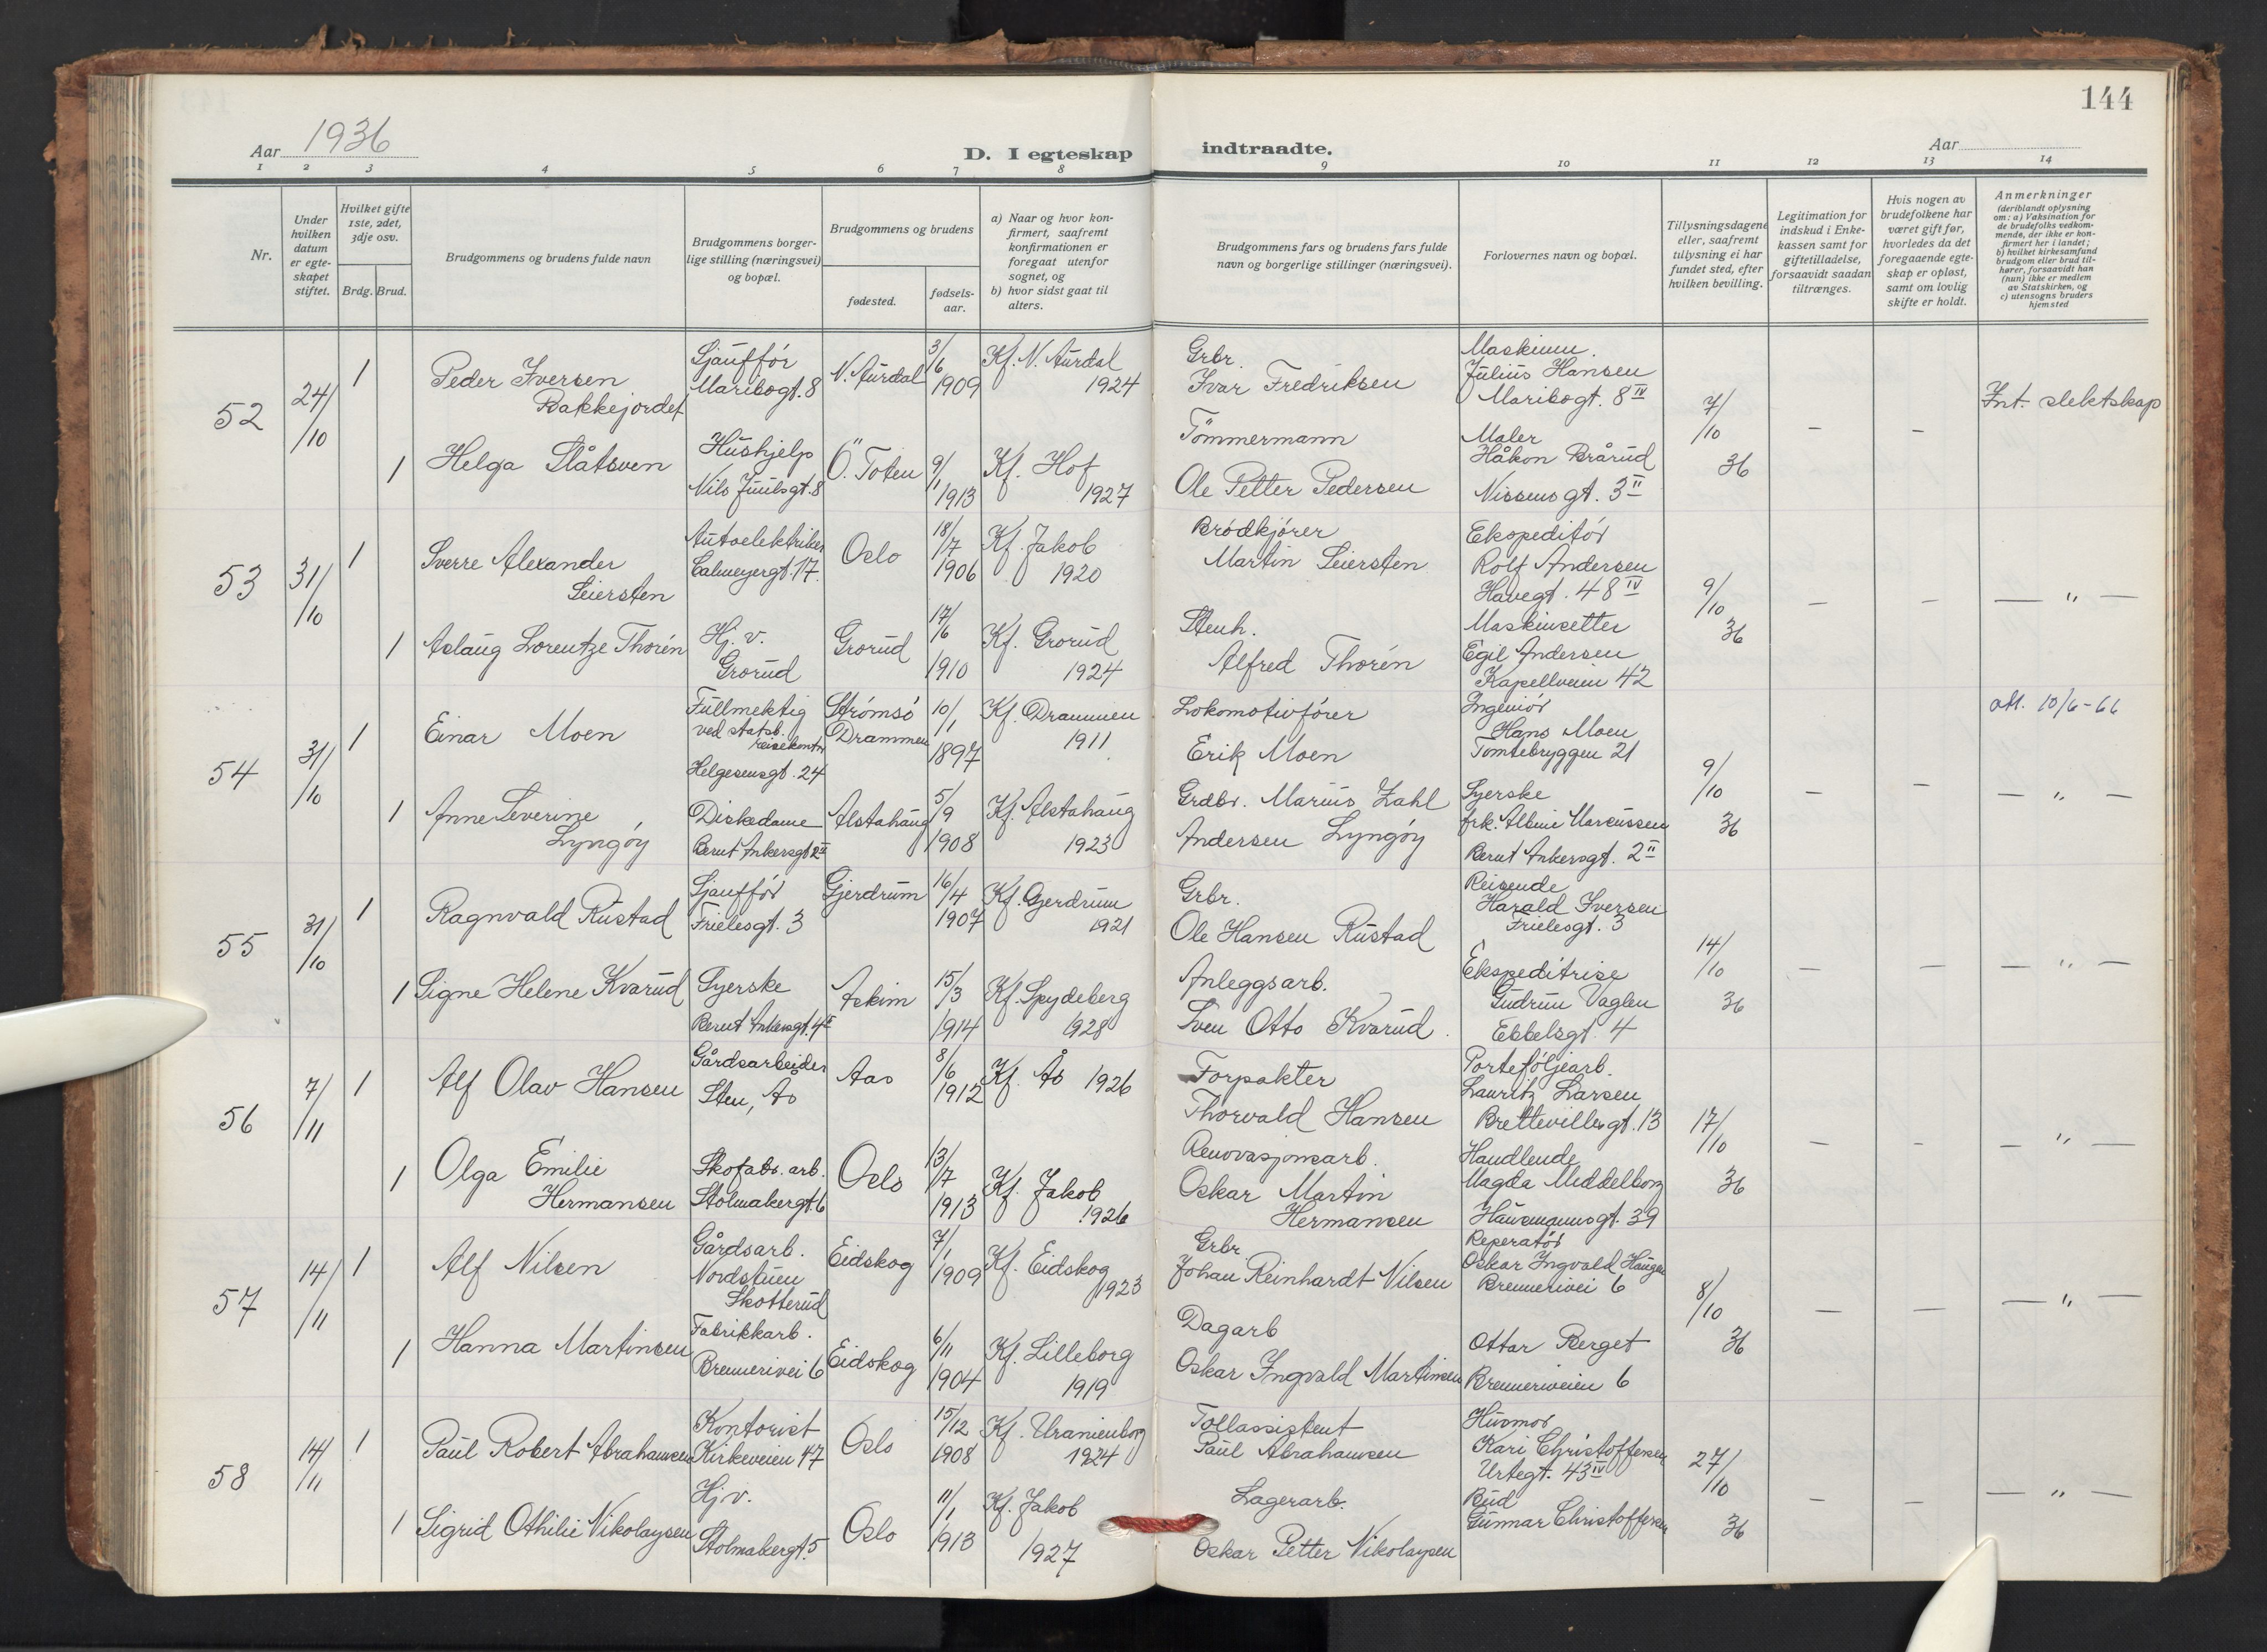 144
Aar 1936
D. I egteskap indtraadte.
Aar
1 2 3 4 5 6 7 8 9 10 11 12 13 14
Nr.
Under hvilken datum er egte-skapet stiftet.
Hvilket gifte 1ste, 2det, 3dje osv.
Brdg. Brud.
Brudgommens og brudens fulde navn
Brudgommens borger-lige stilling (næringsvei) og bopæl.
Brudgommens og brudens
fødested.
fødsels-aar.
a) Naar og hvor kon-firmert, saafremt konfirmationen er foregaat utenfor sognet, og
b) hvor sidst gaat til alters.
Brudgommens fars og brudens fars fulde navn og borgerlige stillinger (næringsvei).
Forlovernes navn og bopæl.
Tillysningsdagene eller, saafremt tillysning ei har fundet sted, efter hvilken bevilling.
Legitimation for indskud i Enke-kassen samt for giftetilladelse, forsaavidt saadan tiltrænges.
Hvis nogen av brudefolkene har været gift før, hvorledes da det foregaaende egte-skap er opløst, samt om lovlig skifte er holdt.
Anmerkninger (deriblandt oplysning om: a) Vaksination for de brudefolks vedkom-mende, der ikke er kon-firmert her i landet; b) hvilket kirkesamfund brudgom eller brud til-hører, forsaavidt han (hun) ikke er medlem av Statskirken, og c) utensogns bruders hjemsted
52
24/10
1
Peder Iversen
Bakkejordet
Sjauffør
Maribogt. 8
N. Aurdal
3/6
1909
Kf. N. Aurdal
1924
Grbr.
Ivar Fredriksen
Maskinm.
Julius Hansen
Maribogt. 8 IV
7/10
36
–
–
Int. slektskap
1
Helga Slåtsven
Hushjelp
Nils Juulsgt. 8
Ö. Toten
9/1
1913
Kf. Hof
1927
Tömmermann
Ole Petter Pedersen
Maler
Håkon Brårud
Nissens gt. 3 II
53
31/10
1
Sverre Alexander
Seiersten
Autoelektriker
Calmeyergt. 17.
Oslo
18/7
1906
Kf. Jakob
1920
Brødkjører
Martin Seiersten
Ekspeditør
Rolf Andersen
Havegt. 48 IV
9/10
36
–
–
— " —
1
Aslaug Lorentze Thorén
Hj. v.
Grorud
Grorud
17/6
1910
Kf. Grorud
1924
Stenh.
Alfred Thorén
Maskinsetter
Egil Andersen
Kapellveien 42
54
31/10
1
Einar Moen
Fullmektig
ved statsb.
reisekontr
Helgesensgt. 24
Strømsø
Drammen
10/1
1897
Kf. Drammen
1911
Lokomotivfører
Erik Moen
Ingeniør
Hans Moen
Tomtebryggen 21
9/10
36
–
–
— " —
att. 10/6-66
1
Anne Severine
Lyngøy
Diskedame
Bernt Ankersgt 2 II
Alstahaug
5/9
1908
Kf. Alstahaug
1923
Grdbr. Marius Zahl
Andersen Lyngøy
Syerske
frk. Albine Marcussen
Bernt Ankersgt. 2 II
55
31/10
1
Ragnvald Rustad
Sjauffør
Frielesgt. 3
Gjerdrum
16/4
1907
Kf. Gjerdrum
1921
Grbr.
Ole Hansen Rustad
Reisende
Harald Iversen
Frielesgt. 3
14/10
36
–
–
— " —
1
Signe Helene Kvarud
Syerske
Bernt Ankersgt. 4
Askim
15/3
1914
Kf. Spydeberg
1928
Anleggsarb.
Sven Otto Kvarud
Ekspeditrise
Gudrun Vaglen
Ebbelsgt. 4
56
7/11
1
Alf Olav Hansen
Gårdsarbeider
Sten, As
Aas
8/6
1912
Kf. Ås 1926
Forpakter
Thorvald Hansen
Porteføljearb.
Lauritz Larsen
Brettevillesgt. 13
17/10
36
–
–
— " —
1
Olga Emilie
Hermansen
Skofabr. arb.
Stolmakergt. 6
Oslo
13/7
1913
Kf. Jakob
1926
Renovasjonsarb.
Oskar Martin
Hermansen
Handlende
Magda Middelborg
Hausmannsgt. 39
57
14/11
1
Alf Nilsen
Gårdsarb.
Nordstuen
Skotterud
Eidskog
7/1
1909
Kf. Eidskog
1923
Grbr.
Johan Reinhardt Nilsen
Reperatør
Oskar Ingvald Haugen
Brennerivei 6
8/10
36
–
–
— " —
1
Hanna Martinsen
Fabrikkarb.
Brennerivei 6
Eidskog
6/11
1904
Kf. Lilleborg
1919
Dagarb
Oskar Ingvald Martinsen
Ottar Berget
Brenneriveien 6
58
14/11
1
Paul Robert Abrahamsen
Kontorist
Kirkeveien 47
Oslo
15/12
1908
Kf. Uranienborg
1924
Tollassistent
Paul Abrahamsen
Husmor
Kari Christoffersen
Urtegt. 43 IV
27/10
36
–
–
— " —
1
Sigrid Othilie Nikolaysen
Hj. v.
Stolmakergt. 5
Oslo
11/1
1913
Kf. Jakob
1927
Lagerarb.
Oskar Petter Nikolaysen
Bud
Gunnar Christoffersen